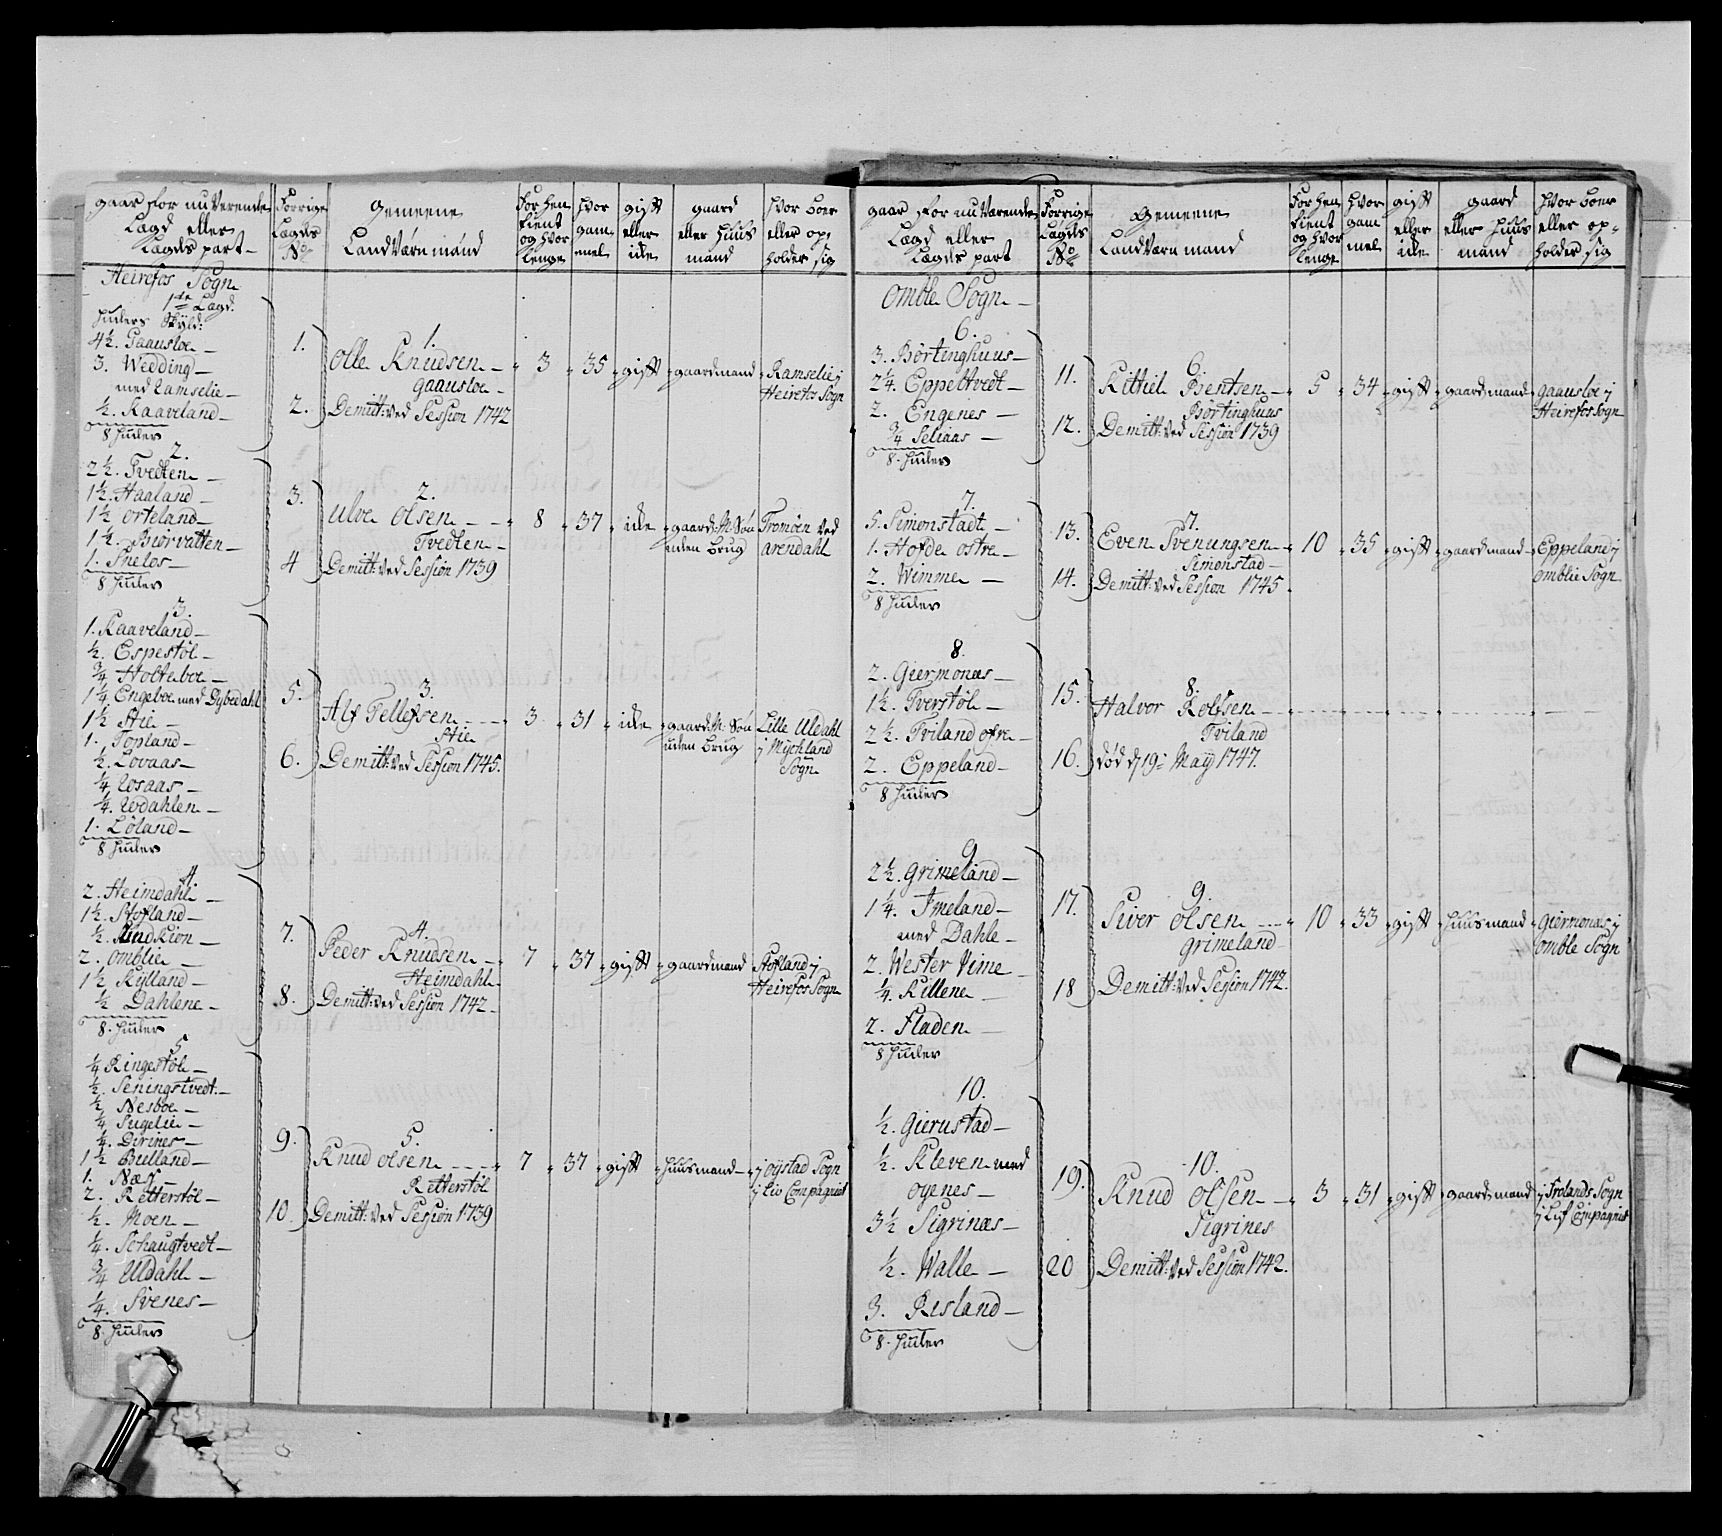 gaar for nu Verende
Lægd eller
Lægds part
Forrige
Lægds
No
Gemeene
Landværn mænd
For hen
tient
og hvor
lenge
Hvor
gam
mel
gift
eller
ikke
gaard
eller Huus
mand
Hvor boer
eller op-
holder sig
Heirefos Sogn
1ste Lægd.
Huders Skyld:
4½. Gaausloe
3. Wedding
med Ramselie
½. Raaveland
8 Huder
1.
2.
1.
Olle Knudsen
Gaausloe
Demitt: ved Session 1742
3
35
gift
gaardmand
Ramselie j
Heirefos Sogn
2.
2½. Tvedten
1½. Haaland
1½ Orteland
1½. Biorvatten
1. Snelos
8 Huder
3.
4
2.
Ulve Olsen
Tvedten
Demitt: ved Session 1739
8
37
ikke
gaard: M: Søn
uden brug
Tromøen ved
Arendahl
3.
1. Raaveland
½. Espestøl
¾ Holteboe
1¼ Engeboe med Dybedahl
1½ Stie
1. Topland
½. Lovaas
¼ Rosaas
¼. Udahlen
1. Løland
8 Huder
5.
6.
3.
Alf Tellefsen
Stie
Demitt: ved Session 1745.
3
31
ikke
gaard: M: Søn
uden brug
Lille Uldahl
j Myckland
Sogn
4
2. Heimdahl
1½. Stofland
½. Lindkion
2. Omblie
1½ Rylland
½ Dahlene
8. Huder
7.
8.
4.
Peder Knudsen
Heimdahl
Demitt: ved Session 1742
7
37
gift
gaardmand
Stofland j
Heirefos Sogn
5
¼ Ringestøl
½. Seningstvedt.
½ Nesboe
¼ Sugelie
¼. Dirines
1½ Bielland
1. Næss
2. Retterstøl
½. Moen
¼. Schaugtvedt
¾ Uldahl
¼. Svenes
8. Huder
9.
10
5.
Knud Olsen
Retterstøl
Demitt: ved Session 1739
7
37
gift
Huusmand
j Oystad Sogn
j Liv Compagniet
gaar for nu Værende
Lægd eller
Lægds part
Forrige
Lægds
No
Gemeene
Landværn mand
For hen
tient
og hvor
lenge
Hvor
gam
mel
gift
eller
ikke
gaard
eller Huus
mand
Hvor boer
eller op-
holder sig
Omble Sogn
6.
3. Børtinghuus
2¼. Eppeltvedt
2. Engenes
¾ Seliaas
8. Huder
11.
12.
6.
Kittiel Bientsen
Børtinghuus
Demitt: ved Session 1739
5
34
gift
gaardmand
Gaausloe j
Heirefos Sogn
7.
5. Simonstadt
1. Hofde ostre
2. Wimme
8 Huder
13.
14.
7.
Even Svenungsen
Simonstad
Demitt: ved Session 1745.
10
35
gift
gaardmand
Eppeland j
Omblie Sogn
8.
2. Giermonæs
1½. Tverstøl
2½. Triland ofre
2. Eppeland
8 Huder
15.
16.
8.
Halvor Rolfsen
Triland
død d 19: May 1747.
9
2½. Grimeland
1¼. Imeland
med Dahle
2. Wester Vime
¼. Killene
2. Fladen
8 Huder
17.
18
9.
Siver Olsen
Grimeland
Demitt: ved Session 1742.
10
33
gift
Huusmand
Giermonæs j
Omble Sogn
10.
½. Gierustad
½. Kleven med
Oyenes
3½ Sigrinæs
½. Walle
3. Risland
8. Huder
19.
20
10.
Knud Olsen
Sigrines
Demitt: ved Session 1742.
3
31
gift
gaardmand
j Frolands Sogn
j Lif Compagniet